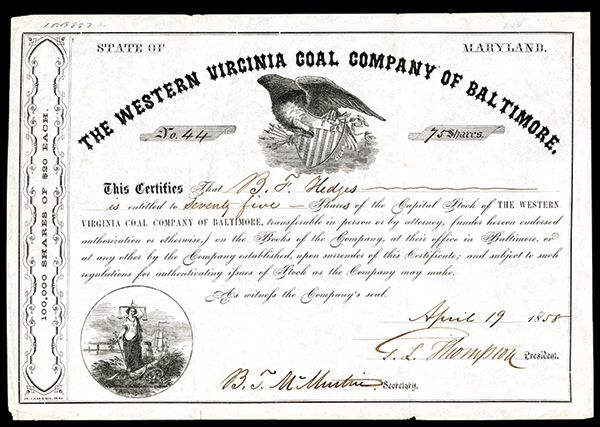 STATE OF MARYLAND.
THE WESTERN VIRGINIA COAL COMPANY OF BALTIMORE.
No. 44 75 Shares.
100,000 SHARES OF $20 EACH.
This Certifies That B. F. Hedges
is entitled to Seventy five Shares of the Capital Stock of THE WESTERN
VIRGINIA COAL COMPANY OF BALTIMORE, transferable in person or by attorney, (under hereon endorsed
authorization or otherwise,) on the Books of the Company, at their office in Baltimore, or
at any other by the Company established, upon surrender of this Certificate; and subject to such
regulations for authenticating issues of Stock as the Company may make.
As witness the Company's seal.
April 19 1858
Thompson President.
B. T. Secretary.